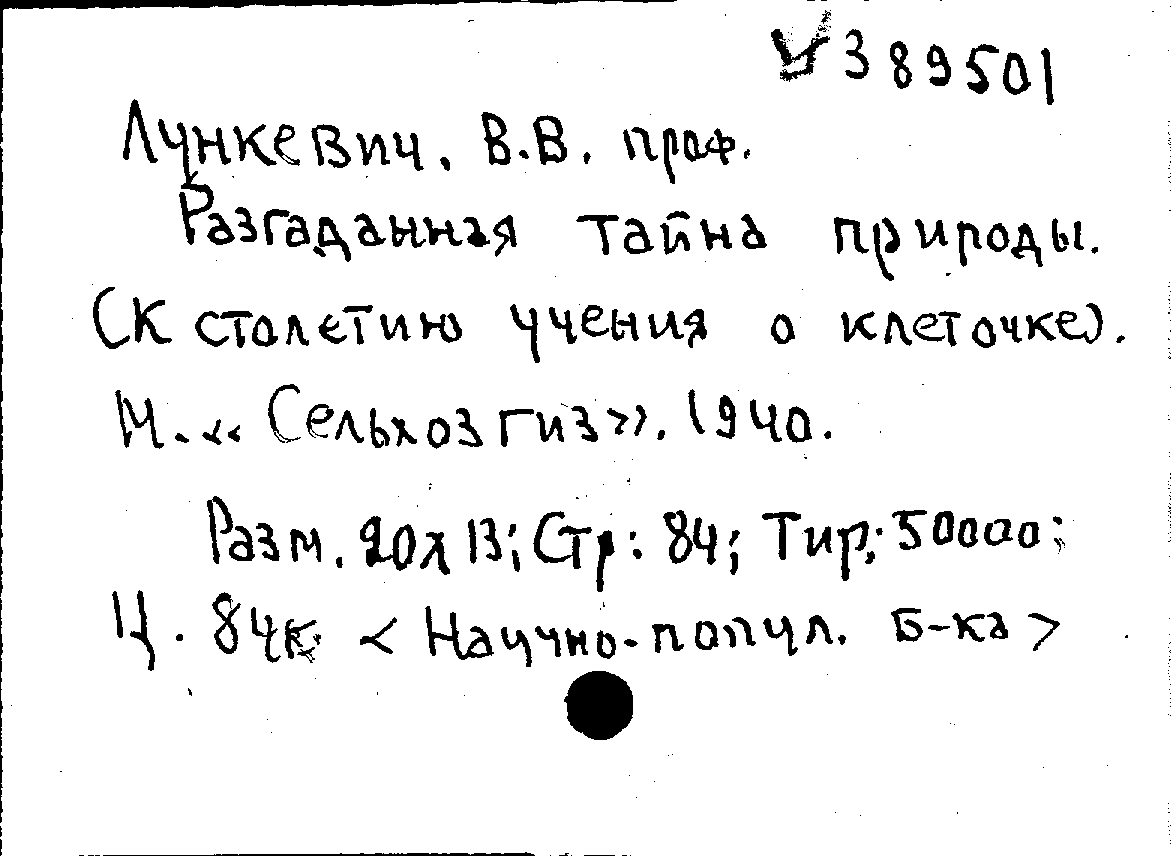 389501
Лункевич. В.В. проф.
Разгаданная тайна природы.
(К столетию учения о клеточке).
М. «Сельхозгиз». 1940.
Разм. 20х13; Стр: 84; Тир; 50000;
Ц. 84к < Научно-попул. Б-ка >